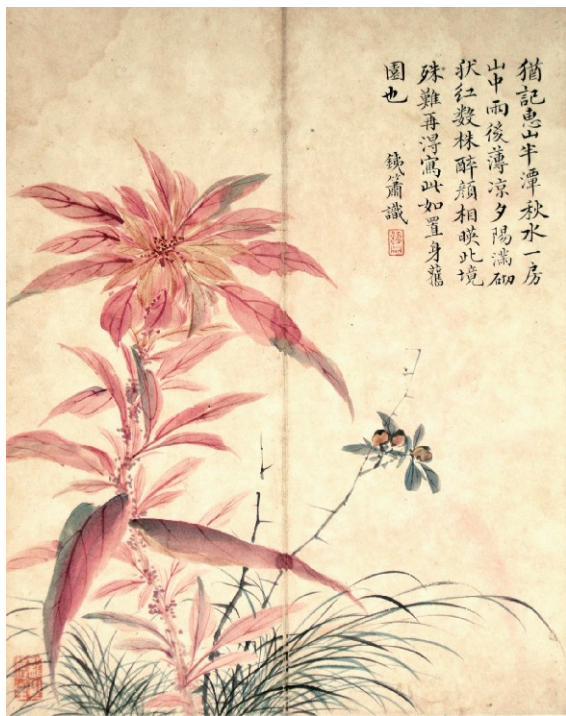 猶記惠山半潭秋水一房
山中雨後薄凉夕陽滿砌
狀紅数株醉顔相暎此境
殊難再得寫此如置身舊
園也
銕簫識